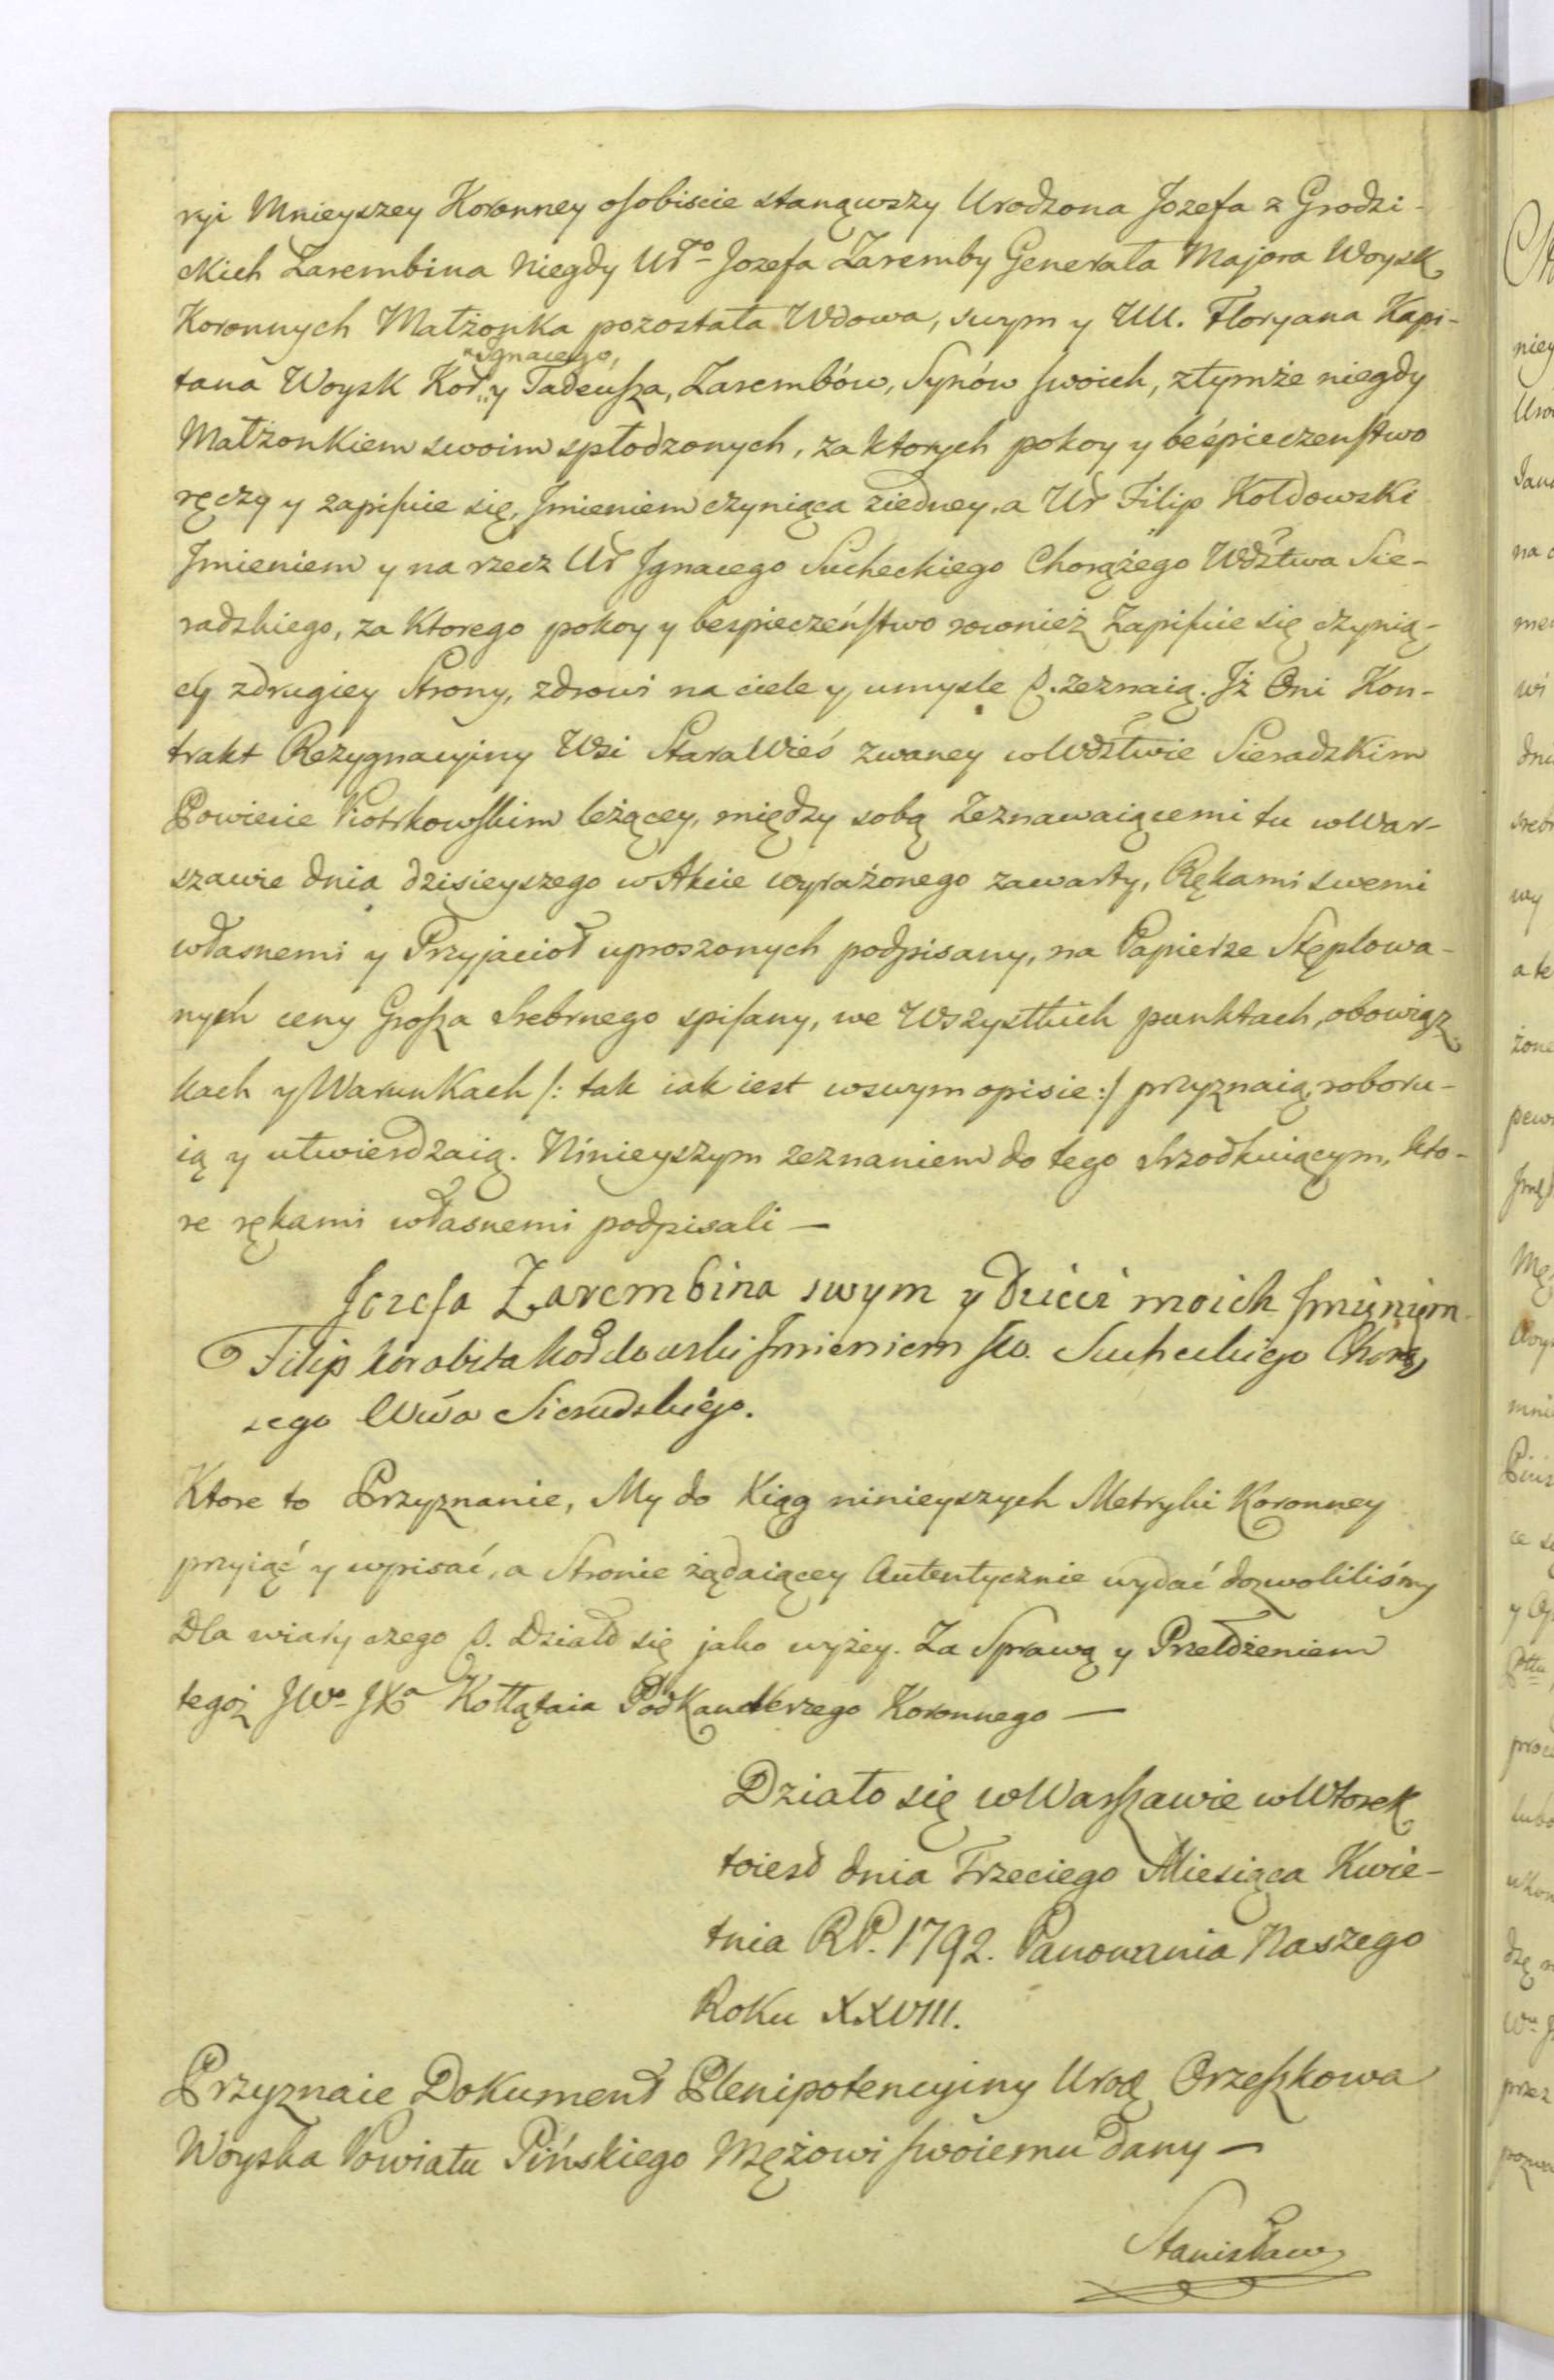 ryi Mnieyszey Koronney osobiscie stanąwszy Urodzona Jozefa z Grodzi-
ckich Zarembina Niegdy Urº Jozefa Zaremby Generała Majora Woysk
Koronnych Małżonka pozostała Wdowa, swym y UU. Floryana Kapi-
Ignacego,
tana Woysk Kor. y Tadeusza, Zarembów, Synów swoich, ztymże niegdy
Małżonkiem swoim spłodzonych, za ktorych pokoy y beśpieczenstwo
ręczy y zapisuie się, Jmieniem czyniąca ziedney, a Ur Filip Kołdowski
Jmieniem y na rzecz Ur Jgnacego Sucheckiego Chorążego Wdztwa Sie-
radzkiego, za Ktorego pokoy y bespieczeństwo rownież Zapisuie się czynią-
cy zdrugiey Strony, zdrowi na ciele y umysle p. zeznaią. Jż Oni Kon-
trakt Rezygnacyiny Wsi StaraWieś zwaney w Wdztwie Sieradzkim
Powiecie Piotrkowskim leżącey, między sobą Zeznawaiącemi tu w War-
szawie dnia dzisieyszego w Akcie wyrażonego zawarty, Rękami swemi
własnemi y Przyjacioł uproszonych podpisany, na Papierze Stęplowa-
nych ceny Grosza Srebrnego spisany, we Wszystkich punktach, obowiąz
kach y WarunKach /: tak iak iest wswym opisie :/ przyznaią, roboru-
ią y utwierdzaią. Ninieyszym zeznaniem do tego srzodkuiącym, kto-
re rękami własnemi podpisali —
Jozefa Zarembina swym y Dzieci moich Jmieniem
Filip Kołdowski Jmieniem Jw. Sucheckiego Chorą
zego Wwa Sieradzkiego.
Ktore to Przyznanie, My do Xiąg ninieyszych Metryki Koronney
przyiąć y wpisać, a Stronie żądaiącey Autentycznie wydać dozwoliliśmy
Dla wiary czego p. Działo się jako wyżey. Za Sprawą y Przełożeniem
tegoż JWº JXª Kołłątaia PodKanclerzego Koronnego —
Działo się w Warszawie w Wtorek
toiest dnia Trzeciego Miesiąca Kwie-
tnia RP. 1792. Panowania Naszego
Roku XXVIII.
Przyznaie Dokument Plenipotencyiny Urod Orzeszkowa
Woyska Powiatu Pińskiego Mężowi swoiemu dany —
Stanisław